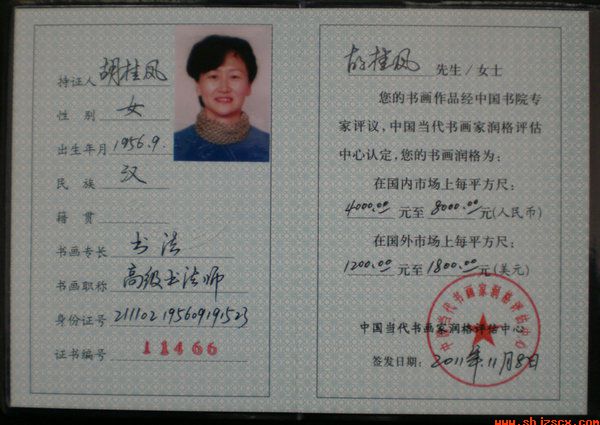 持证人 胡桂凤
性别 女
出生年月 1956.9.
民族 汉
籍贯
书画专长 书法
书画职称 高级书法师
身份证号 211102195609191523
证书编号 11466
胡桂凤 先生/女士
您的书画作品经中国书院专
家评议,中国当代书画家润格评估
中心认定,您的书画润格为:
在国内市场上每平方尺:
4000.00元至8000.00元(人民币)
在国外市场上每平方尺:
1200.00元至1800.00元(美元)
中国当代书画家润格评估中心
中国当代书画家润格评估中心
签发日期:2011年11月8日
www.shjzscx.com